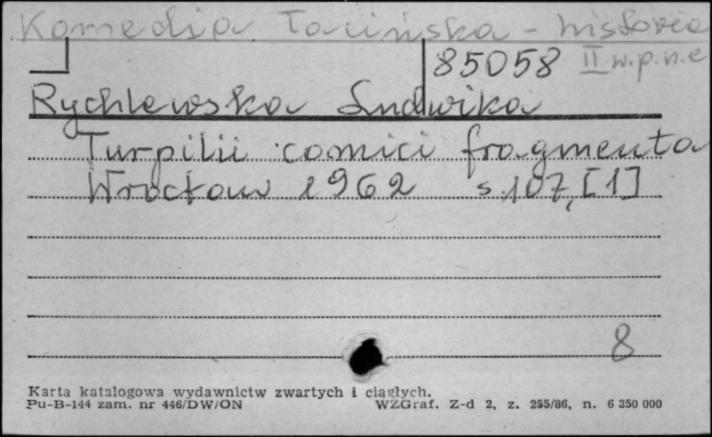 Komedia łacińska - historia
85058 II w.p.n.e
Rychlewska Ludwika
Turpilii comici fragmenta
Wrocław 1962 s. 107, [1]
8
Karta katalogowa wydawnictw zwartych i ciągłych.
Pu-B-144 zam. nr 446/DW/ON WZGraf. Z-d 2, z. 255/86, n. 6 350 000